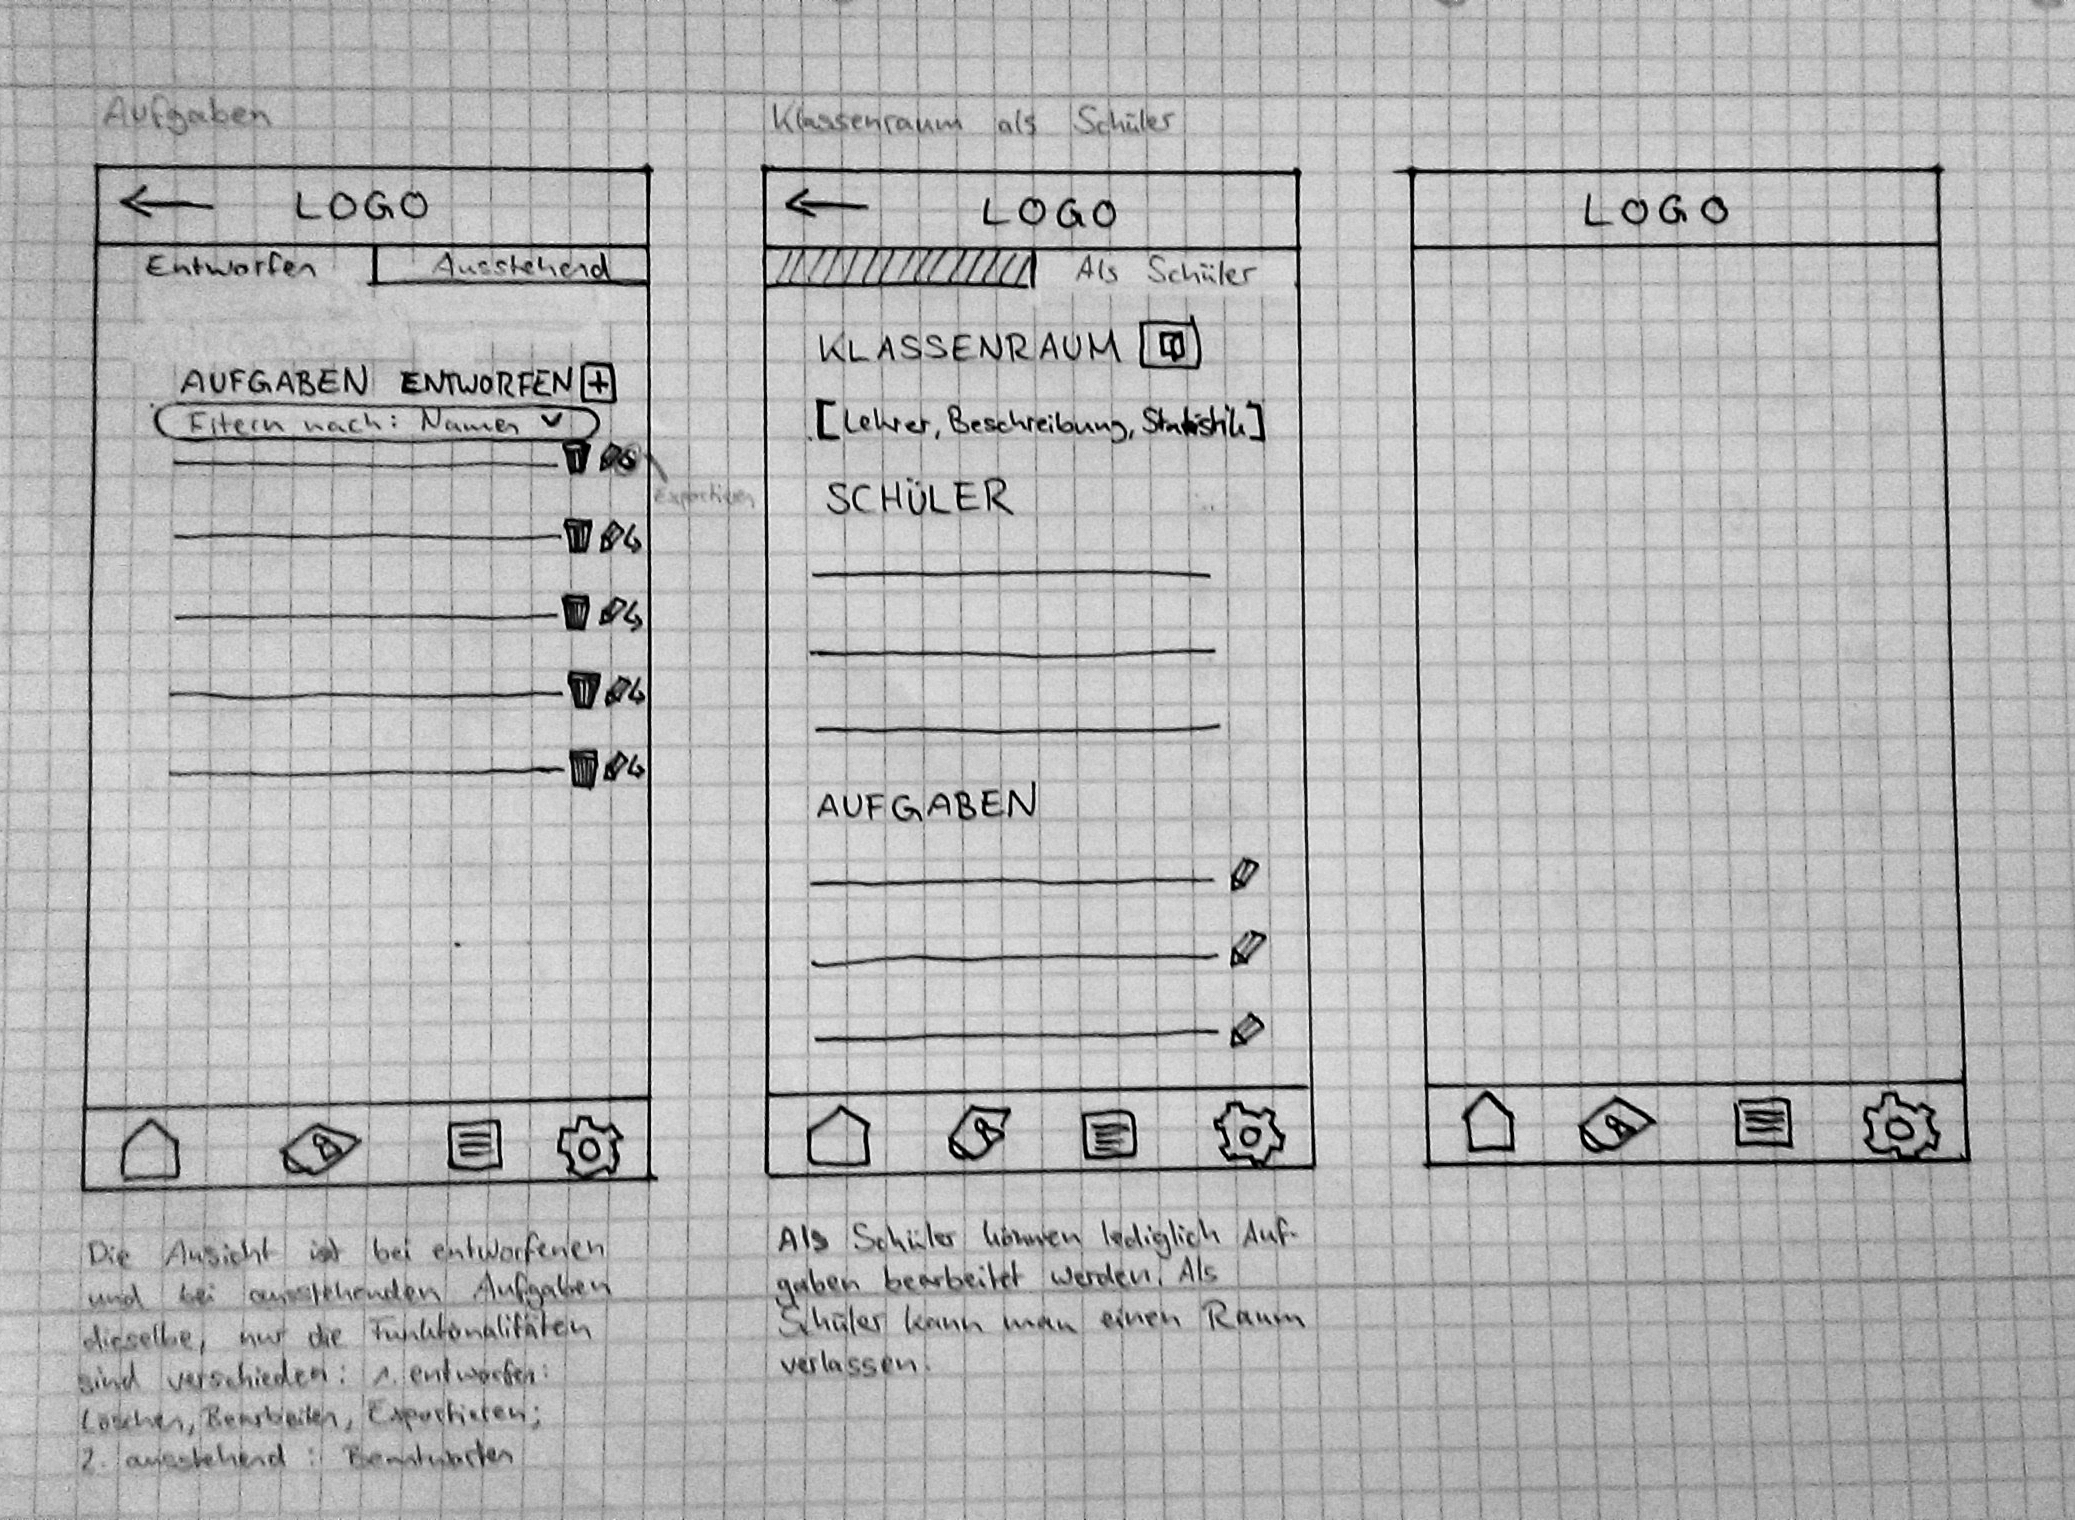 Aufgaben
Klassenraum als Schüler
LOGO
Entworfen
Ausstehend
AUFGABEN ENTWORFEN
Filtern nach: Namen
Exportieren
Die Ansicht ist bei entworfenen
und bei ausstehenden Aufgaben
dieselbe, nur die Funktionalitäten
sind verschieden: 1. entworfen:
Löschen, Bearbeiten, Exportieren;
2. ausstehend: Beantworten
LOGO
Als Schüler
KLASSENRAUM
[Lehrer, Beschreibung, Statistik]
SCHÜLER
AUFGABEN
Als Schüler können lediglich Auf-
gaben bearbeitet werden. Als
Schüler kann man einen Raum
verlassen.
LOGO